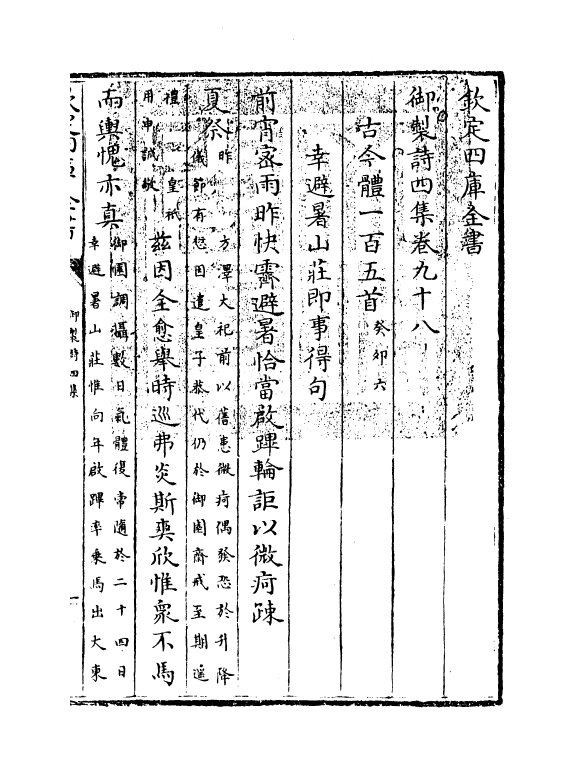 欽定四庫全書
御製詩四集卷九十八
古今體一百五首癸卯六
幸避暑山莊即事得句
前宵密雨昨快霽避暑恰當啟蹕輪詎以微痾疎
夏祭昨方澤大祀前以舊患微痾偶發恐於升降
儀節有愆因遣皇子恭代仍於御園齋戒至期遥
禮皇祇
用申誠敬
茲因全愈舉時巡弗炎斯爽欣惟衆不馬
而輿愧亦真御園調攝數日氣體復常隨於二十四日
幸避暑山莊惟向年啟蹕率乗馬出大東
御製詩四集
一